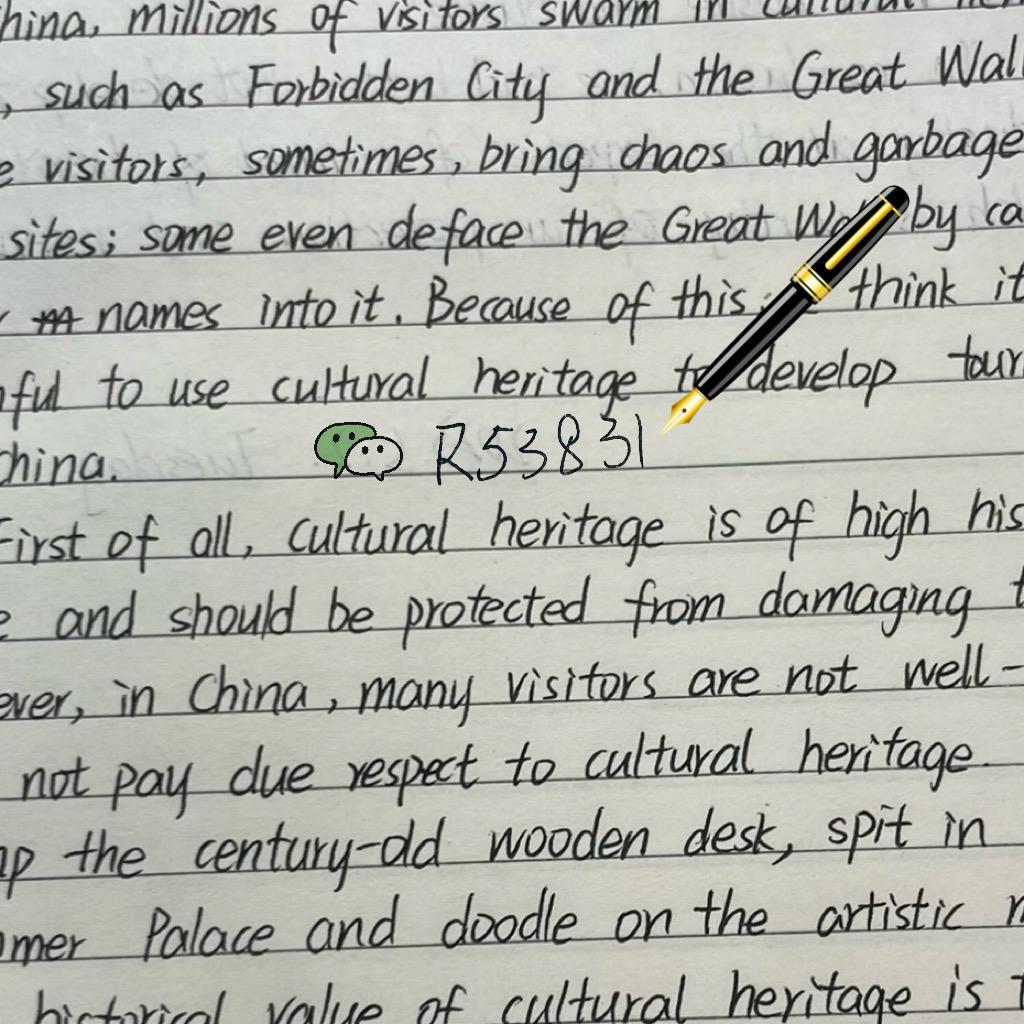 hina, millions of visitors swarm in cultural
, such as Forbidden City and the Great Wall
e visitors, sometimes, bring chaos and garbage
sites; some even deface the Great Wall by ca
names into it. Because of this, think it
ful to use cultural heritage to develop tour
hina.
R53831
First of all, cultural heritage is of high his
e and should be protected from damaging t
ever, in China, many visitors are not well-
not pay due respect to cultural heritage.
up the century-old wooden desk, spit in
mer Palace and doodle on the artistic
historical value of cultural heritage is